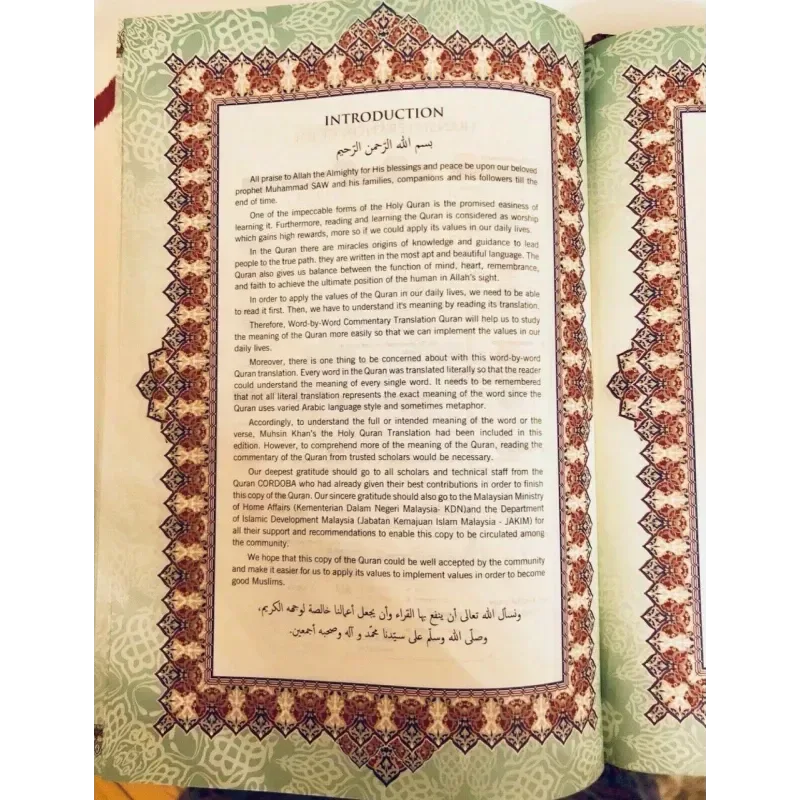 INTRODUCTION
بسم الله الرّحمن الرّحيم
All praise to Allah the Almighty for His blessings and peace be upon our beloved
prophet Muhammad SAW and his families, companions and his followers till the
end of time.
One of the impeccable forms of the Holy Quran is the promised easiness of
learning it. Furthermore, reading and learning the Quran is considered as worship
which gains high rewards, more so if we could apply its values in our daily lives.
In the Quran there are miracles origins of knowledge and guidance to lead
people to the true path. they are written in the most apt and beautiful language. The
Quran also gives us balance between the function of mind, heart, remembrance,
and faith to achieve the ultimate position of the human in Allah's sight.
In order to apply the values of the Quran in our daily lives, we need to be able
to read it first. Then, we have to understand it's meaning by reading its translation.
Therefore, Word-by-Word Commentary Translation Quran will help us to study
the meaning of the Quran more easily so that we can implement the values in our
daily lives.
Moreover, there is one thing to be concerned about with this word-by-word
Quran translation. Every word in the Quran was translated literally so that the reader
could understand the meaning of every single word. It needs to be remembered
that not all literal translation represents the exact meaning of the word since the
Quran uses varied Arabic language style and sometimes metaphor.
Accordingly, to understand the full or intended meaning of the word or the
verse, Muhsin Khan's the Holy Quran Translation had been included in this
edition. However, to comprehend more of the meaning of the Quran, reading the
commentary of the Quran from trusted scholars would be necessary.
Our deepest gratitude should go to all scholars and technical staff from the
Quran CORDOBA who had already given their best contributions in order to finish
this copy of the Quran. Our sincere gratitude should also go to the Malaysian Ministry
of Home Affairs (Kementerian Dalam Negeri Malaysia- KDN)and the Department
of Islamic Development Malaysia (Jabatan Kemajuan Islam Malaysia - JAKIM) for
all their support and recommendations to enable this copy to be circulated among
the community.
We hope that this copy of the Quran could be well accepted by the community
and make it easier for us to apply its values to implement values in order to become
good Muslims.
ونسأل الله تعالى أن ينفع بها القراء وأن يجعل أعمالنا خالصة لوجهه الكريم،
وصلّى الله وسلّم على سيّدنا محمّد و آله وصحبه أجمعين.